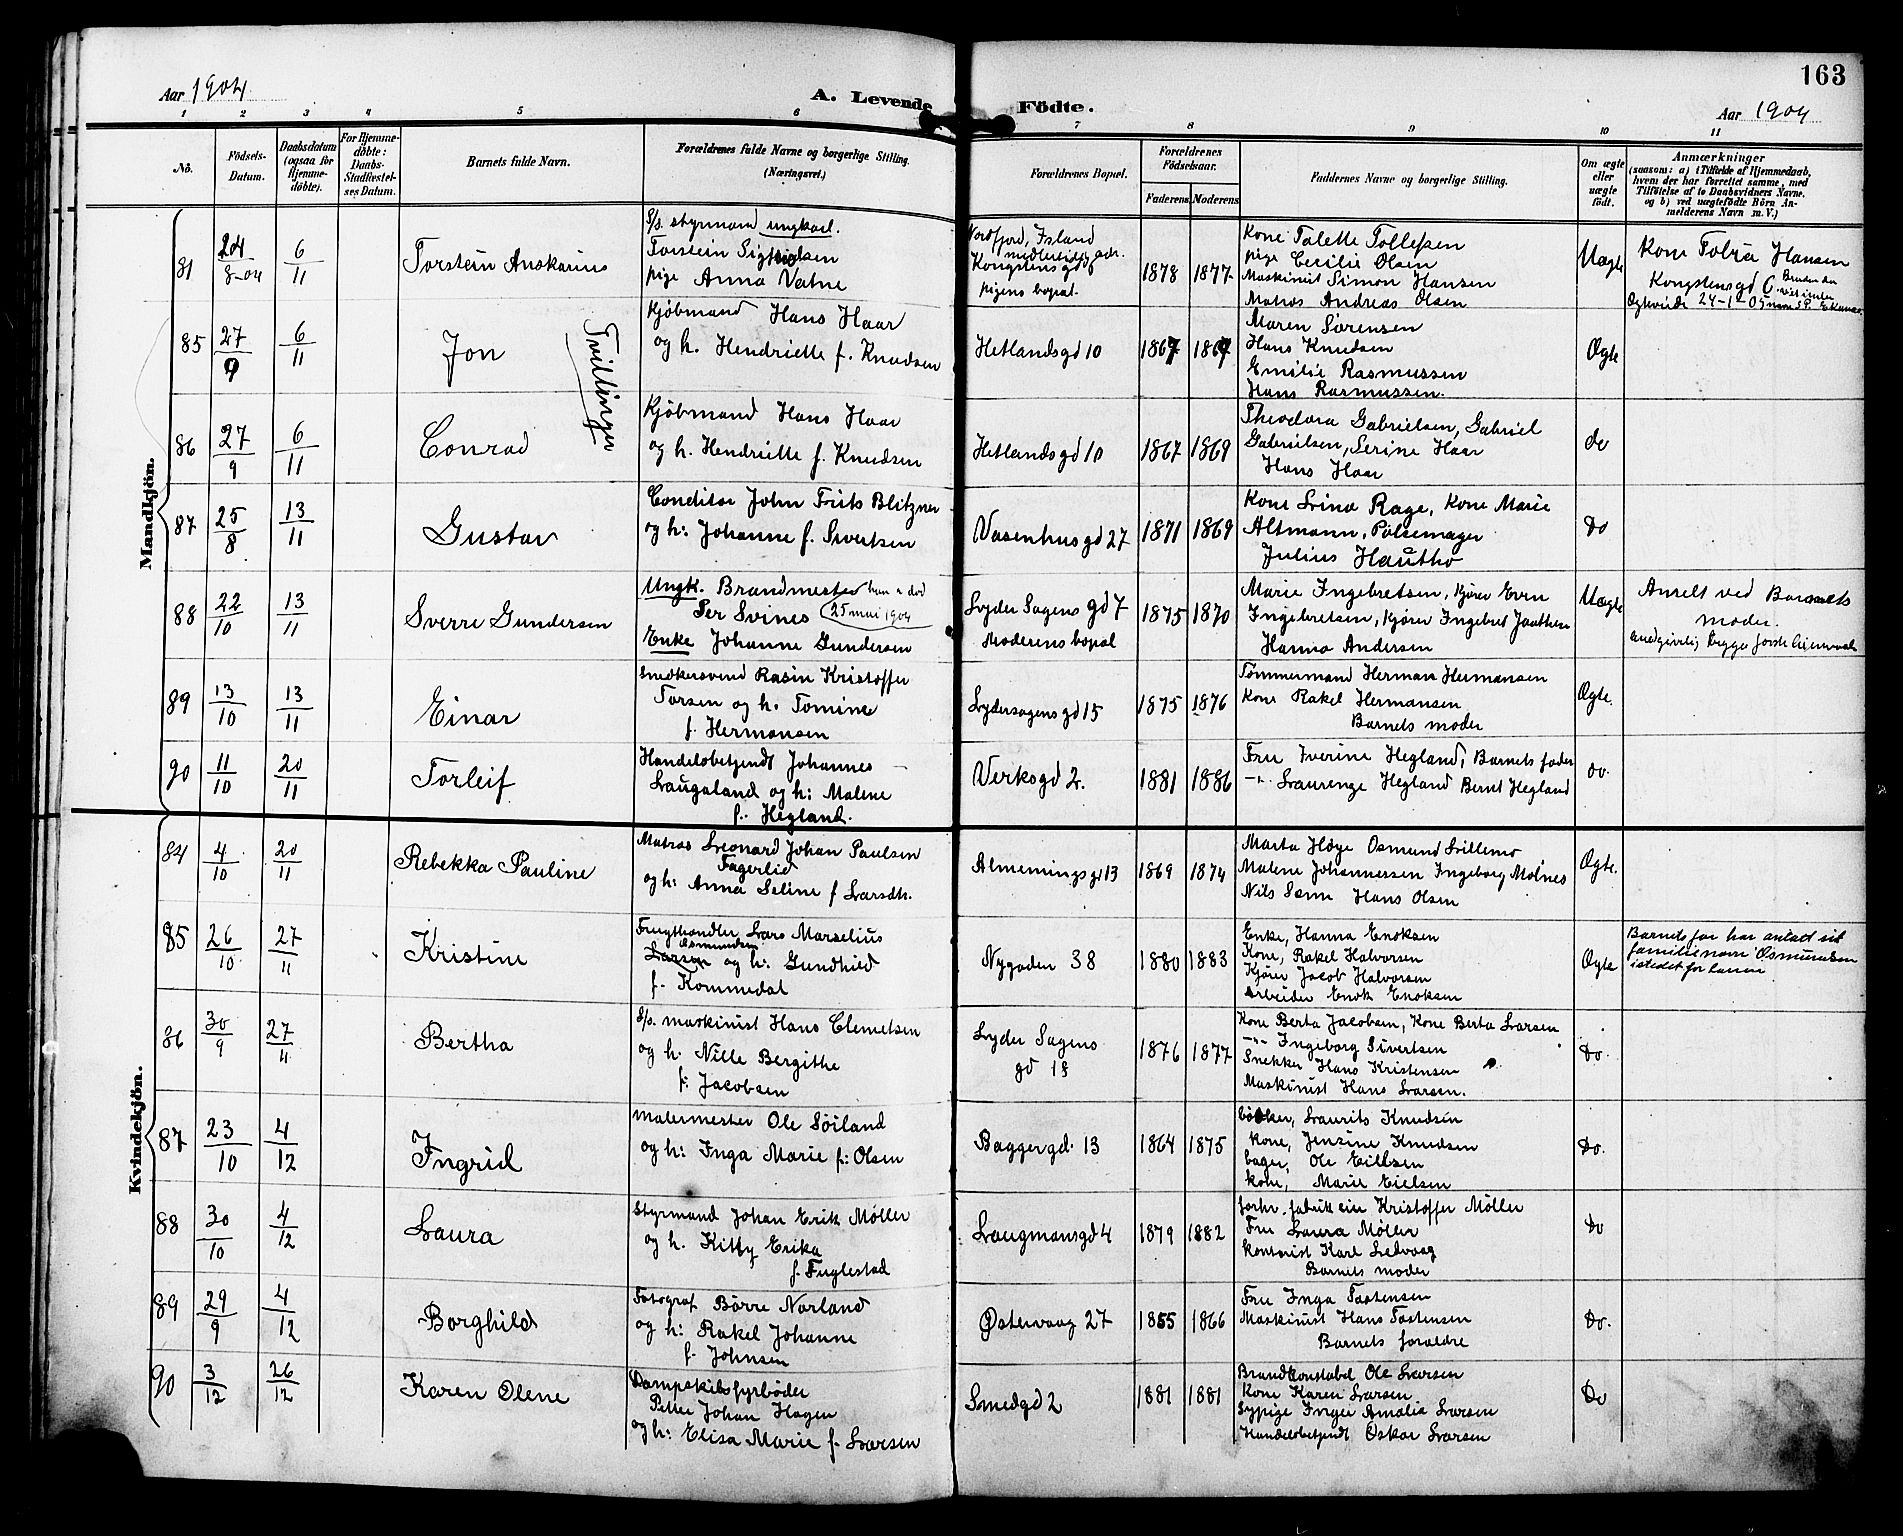 163
Aar 1904
A. Levende Födte.
Aar 1904
1 2 3 4 5 6 7 8 9 10 11
No.
Födsels-Datum.
Daabsdatum (ogsaa for Hjemme-döbte).
For Hjemme-döbte: Daabs-Stadfæstel-ses Datum.
Barnets fulde Navn.
Forældrenes fulde Navne og borgerlige Stilling. (Næringsvei.)
Forældrenes Bopæl.
Forældrenes Födselsaar.
Faderens Moderens
Faddernes Navne og borgerlige Stilling.
Om ægte eller uægte födt.
Anmærkninger
(saasom: a) i Tilfælde af Hjemmedaab,
hvem der har forrettet samme, med
Tilföielse af to Daabsvidners Navne,
og b) ved uægtefödte Börn An-
melderens Navn m. V.)
Mandkjön.
81 24/8-04 6/11 Torstein Anskarius
S/s. styrmand ungkarl.
Torstein
pige Anna Vatne
Nordfjord, Island
midlertidig adr.
Kongstensgd
pigens bopæl.
1878 1877
Kone Talette Tollefsen
pige Cecilie Olsen
Maskinist Simon Hansen
Matros Andreas Olsen
Uægte
Kone Tobia Hansen
Kongstensgd 6
85 27/9 6/11 Jon
Tvillinger
Kjöbmand Hans Haar
og h. Hendriette f. Knudsen
Hetlandsgd 10
1867 1869
Maren Sörensen
Hans Knudsen
Emilie Rasmussen
Hans Rasmussen.
Ægte
86 27/9 6/11 Conrad
Kjöbmand Hans Haar
og h. Hendriette f. Knudsen
Hetlandsgd 10
1867 1869
Theodora Gabrielsen, Gabriel
Gabrielsen, Serine Haar
Hans Haar
do
87 25/8 13/11 Gustav
Conditor John Frits Blitzner
og h: Johanne f. Sivertsen
Vasenhusgd 27
1871 1869
Kone Srina Rage, Kone Marie
Altmann, Pölsemager
Julius Hautho
Do
88 22/10 13/11 Sverre Gundersen
Ungk. Brandmester han e död
Per Svines (25 mai 1904
Enke Johanne Gundersen
Lyder Sagens gd 7
Moderens bopæl
1875 1870
Marie Ingebretsen, Kjörer Even
Ingebretsen, Kjörer Ingebret Jaathen
Hanna Andersen
Uægte
Anmelt ved Barnets
moder.
89 13/10 13/11 Einar
Snedkersvend Rasin Kristoffer
Torsen og h. Tomine
f. Hermansen
Lydersagensgd 15
1875 1876
Tömmermand Herman Hermansen
Kone Rakel Hermansen
Barnets moder
Ægte.
90 11/10 20/11 Torleif
Handelsbetjendt Johannes
Laugaland og h: Malene
f. Hegland.
Verksgd 2.
1881 1886
Fru Iverine Hegland, Barnets fader
-"- Laurenze Hegland Bernt Hegland
do.
Kvindekjön.
84 4/10 20/11 Rebekka Pauline
Matros Leonard Johan Paulsen
Fagerlid
og h: Anna Seline f Larsdtr.
Almemingsgd 13
1869 1874
Marta Höye Osmund Lillemo
Malene Johannessen Ingeborg Molnes
Nils Sem Hans Olsen
Ægte.
85 26/10 27/11 Kristine
Frugthandler Lars Marselius
Osmundsen
Larsen og h: Gundhild
f. Kommedal
Nygaden 38
1880 1883
Enke, Hanna Enoksen
Kone, Rakel Halvorsen
Kjörer Jacob Halvorsen
Arbeider Enok Enoksen
Ægte
Barnets far har antadt sit
familienavn Osmundsen
istedet for Larsen
86 30/9 27/11 Bertha
S/s. maskinist Hans Clemetsen
og h. Nille Bergithe
f: Jacobsen
Lyder Sagens
gd 18
1876 1877
Kone Berta Jacobsen, Kone Berta Larsen
-"- Ingeborg Sivertsen
Snekker Hans Kristensen
Maskinist Hans Larsen.
Do.
87 23/10 4/12 Ingrid
Malermester Ole Söiland
og h: Inga Marie f: Olsen
Baggergd. 13
1864 1875
bökker, Laurits Knudsen
kone, Jensine Knudsen
bager, Ole Eielsen
kone, Marie Eielsen
Do.
88 30/10 4/12 Laura
Styrmand Johan Erik Möller
og h. Kitty Erika
f. Fuglestad
Laugmansgd 4
1879 1882
forhv. fabrikeier Kristoffer Möller
Fru Laura Möller
kontorist Karl Ledvoag
Barnets moder
Do
89 29/9 4/12 Borghild
Fotograf Börre Norland
og h: Rakel Johanne
f. Johnsen
Östervaag 27
1855 1866
Fru Inga Tostensen
Maskinist Hans Tostensen
Barnets forældre
Do.
90 3/12 26/12 Karen Olene
Dampskibsfyrböder
Petter Johan Hagen
og h: Elisa Marie f. Larsen
Smedgd 2
1881 1881
Brandkonstabel Ole Larsen
Kone Karen Larsen
Sypige Inger Amalia Larsen
Handelsbetjendt Oskar Larsen
Do